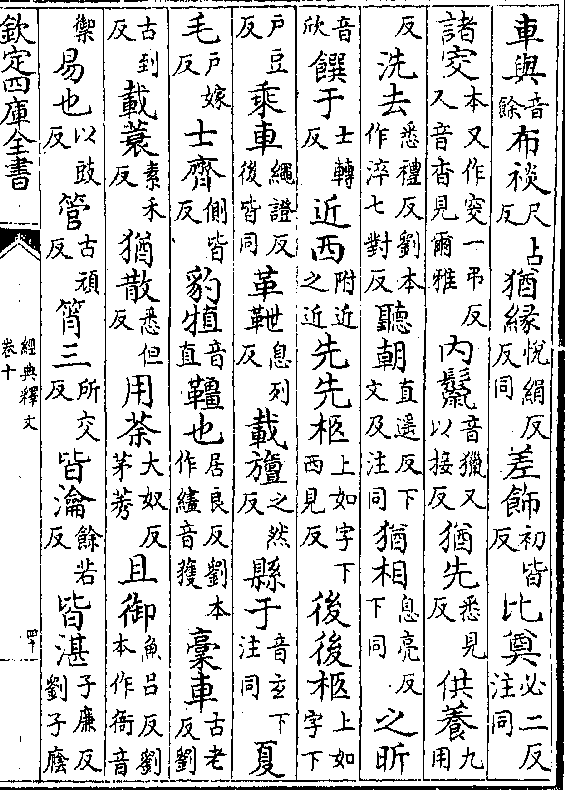 車輿音餘布裧尺占反猶緣悅絹反同差飾初皆反比奠必二反注同
諸窔本又作穾一弔反又音杳見爾雅內鬣音獵又以接反猶先悉見反供養九用
反洗去悉禮反劉本作淬七對反聽朝直遥反下文及注同猶相息亮反下同之昕
音欣饌于士轉反近西附近之近先先柩上如字下西見反後後柩上如字下
戶豆反乘車繩證反後皆同革靾息列反載旜之然反縣于音玄下注同夏
毛戶嫁反士齊側皆反豹犆音直韁也居良反劉本作繣音獲槀車古老反劉
古到反載蓑素禾反猶散悉但反用荼大奴反茅莠且御魚呂反劉本作衙音
禦易也以豉反管古頑反筲三所交反皆瀹餘若反皆湛子廉反劉子廕
欽定四庫全書
經典釋文
卷十
四十